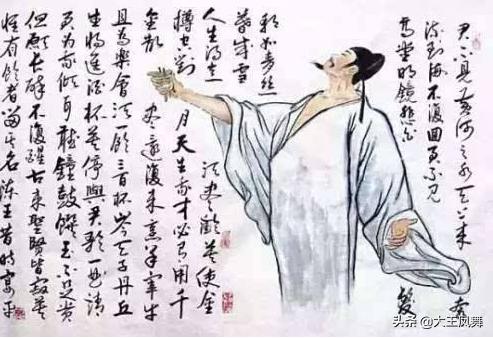 君不见黄河之水天上来奔
流到海不复回君不见
高堂明镜悲白髮
朝如青丝
暮成雪
人生得意
须尽歡莫使金
樽空对月天生我才必有用千
金散尽还復来烹羊宰牛
且为樂會须一飲三百杯岑夫子丹丘
生将進酒杯莫停與君歌一曲请
君为我倾耳聴鐘鼓饌玉不足贵
但願长醉不復醒古来聖賢皆寂莫
惟有飲者留其名陈王昔时宴平
头条 @大王凤舞